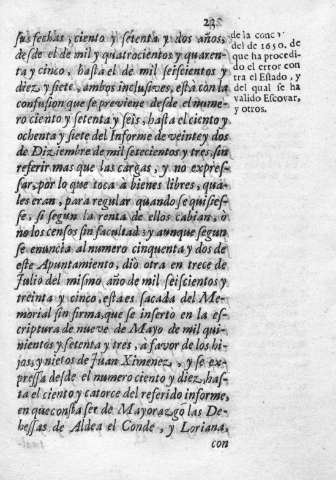 23
sus fechas, ciento y setenta y dos años,
desde el de mil y quatrocientos y quaren-
ta y cinco, hasta el de mil seiscientos y
diez, y siete, ambos inclusives, està con la
confusion que se previene desde el nume-
ro ciento y setenta y seis, hasta el ciento y
ochenta y siete del Informe de veinte y dos
de Diziembre de mil setecientos y tres, sin
referir mas que las cargas, y no expres-
sar, por lo que toca à bienes libres, qua-
les eran, para regular quando se quisies-
se, si segun la renta de ellos cabian, ò
no los censos sin facultad: y aunque segun
se enuncia al numero cinquenta y dos de
este Apuntamiento, diò otra en trece de
Julio del mismo año de mil seiscientos y
treinta y cinco, esta es sacada del Me-
morial sin firma, que se insertò en la es-
criptura de nueve de Mayo de mil qui-
nientos y setenta y tres, à favor de los hi-
jos, y nietos de Juan Ximenez, y se ex-
pressa desde el numero ciento y diez, has-
ta el ciento y catorce del referido informe,
en que consta ser de Mayorazgo las De-
hessas de Aldea el Conde, y Loriana,
con
de la conc
del de 1650. de
que ha procedi-
do el error con
tra el Estado, y
del qual se ha
valido Escovar,
y otros.